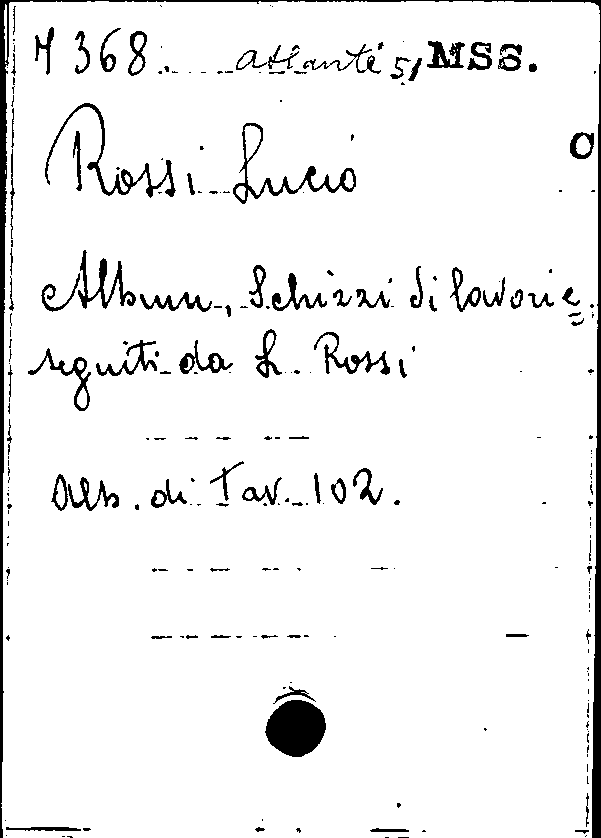 M 368. Atlante 51 MSS.
O
Rossi Lucio
Album, Schizzi di lavori e=
seguiti da L. Rossi
Alb. di Tav. 102.